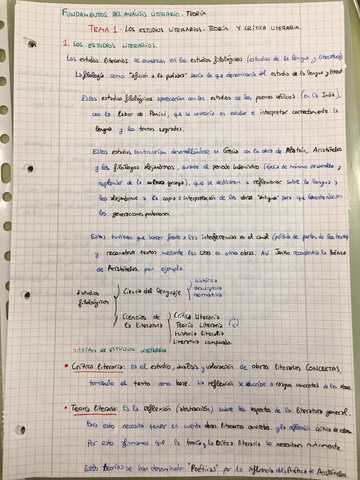 FUNDAMENTOS DEL ANÁLISIS LITERARIO. TEORÍA
TEMA 1. LOS ESTUDIOS LITERARIOS. TEORÍA Y CRÍTICA LITERARIA
1. LOS ESTUDIOS LITERARIOS.
Los estudios literarios se enmarcan en los estudios filológicos (estudios de la lengua y literatura)
La filología como "afición a la palabra" sería la que denominaría del estudio de la lengua y literat
Estos estudios filológicos aparecerían con los estudios de los poemas védicos (en la India),
con la labor de Panini, que se centraría en estudiar e interpretar correctamente la
lengua y los textos sagrados.
Estos estudios continuarían desarrollándose en Grecia con la obra de Platón, Aristóteles
y los filólogos alejandrinos, durante el periodo helenístico (época de máximo desarrollo y
esplendor de la cultura griega), que se dedicaron a reflexionar sobre la lengua y
los alejandrinos a la copia e interpretación de las obras "antiguas" para que
las generaciones posteriores.
Estos tuvieron que hacer frente a las interferencias en el canal (pérdida de partes de los textos)
y reconstruir textos mediante las citas en otras obras. Así Janko reconstruiría la Poética
de Aristóteles, por ejemplo.
Estudios filológicos
Ciencia del lenguaje
histórica
descriptiva
normativa
Ciencias de la literatura
Crítica Literaria
Teoría Literaria
Historia literaria
Literatura comparada.
• Crítica literaria: Es el estudio, análisis y valoración de obras literarias CONCRETAS,
tomando el texto como base. La reflexión se circunscribe a rasgos concretos de las obras.
• Teoría literaria: Es la reflexión (abstracción) sobre los aspectos de la literatura general.
Para esto necesita tener en cuenta obras literarias concretas, y la reflexión crítica de obras.
Por esto afirmamos que la teoría y la crítica literaria se necesitan mutuamente.
Estas teorías se han denominado "Poéticas" por la influencia de la Poética de Aristóteles.